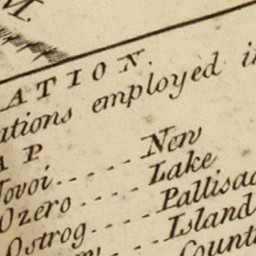 M.
ATION.
employed
AP
Novoi...... New
Ozero..... Lake
Ostrog..... Pallisad
Island
Count